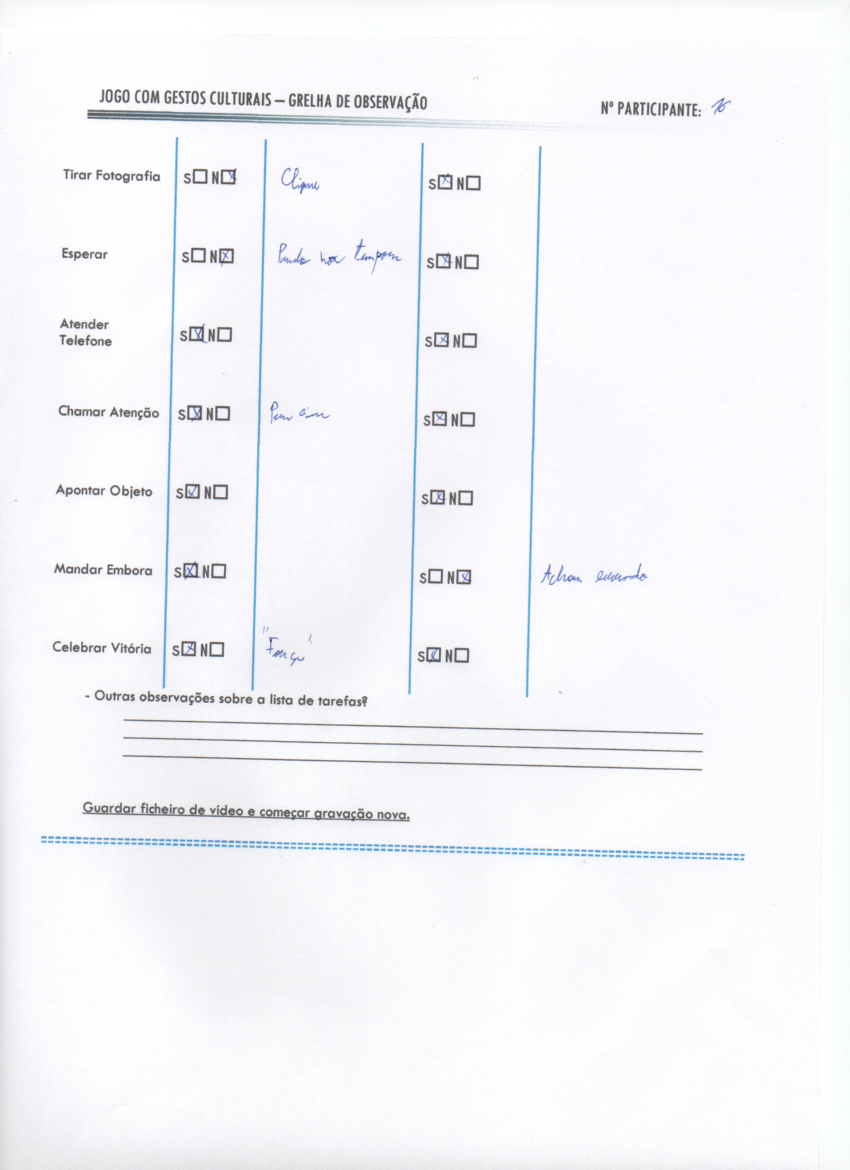 JOGO COM GESTOS CULTURAIS – GRELHA DE OBSERVAÇÃO Nº PARTICIPANTE: 16
Tirar Fotografia S N Clique S N
Esperar S N S N
Atender
Telefone S N S N
Chamar Atenção S N S N
Apontar Objeto S N S N
Mandar Embora S N S N
Celebrar Vitória S N "Força" S N
- Outras observações sobre a lista de tarefas?
Guardar ficheiro de vídeo e começar gravação nova.